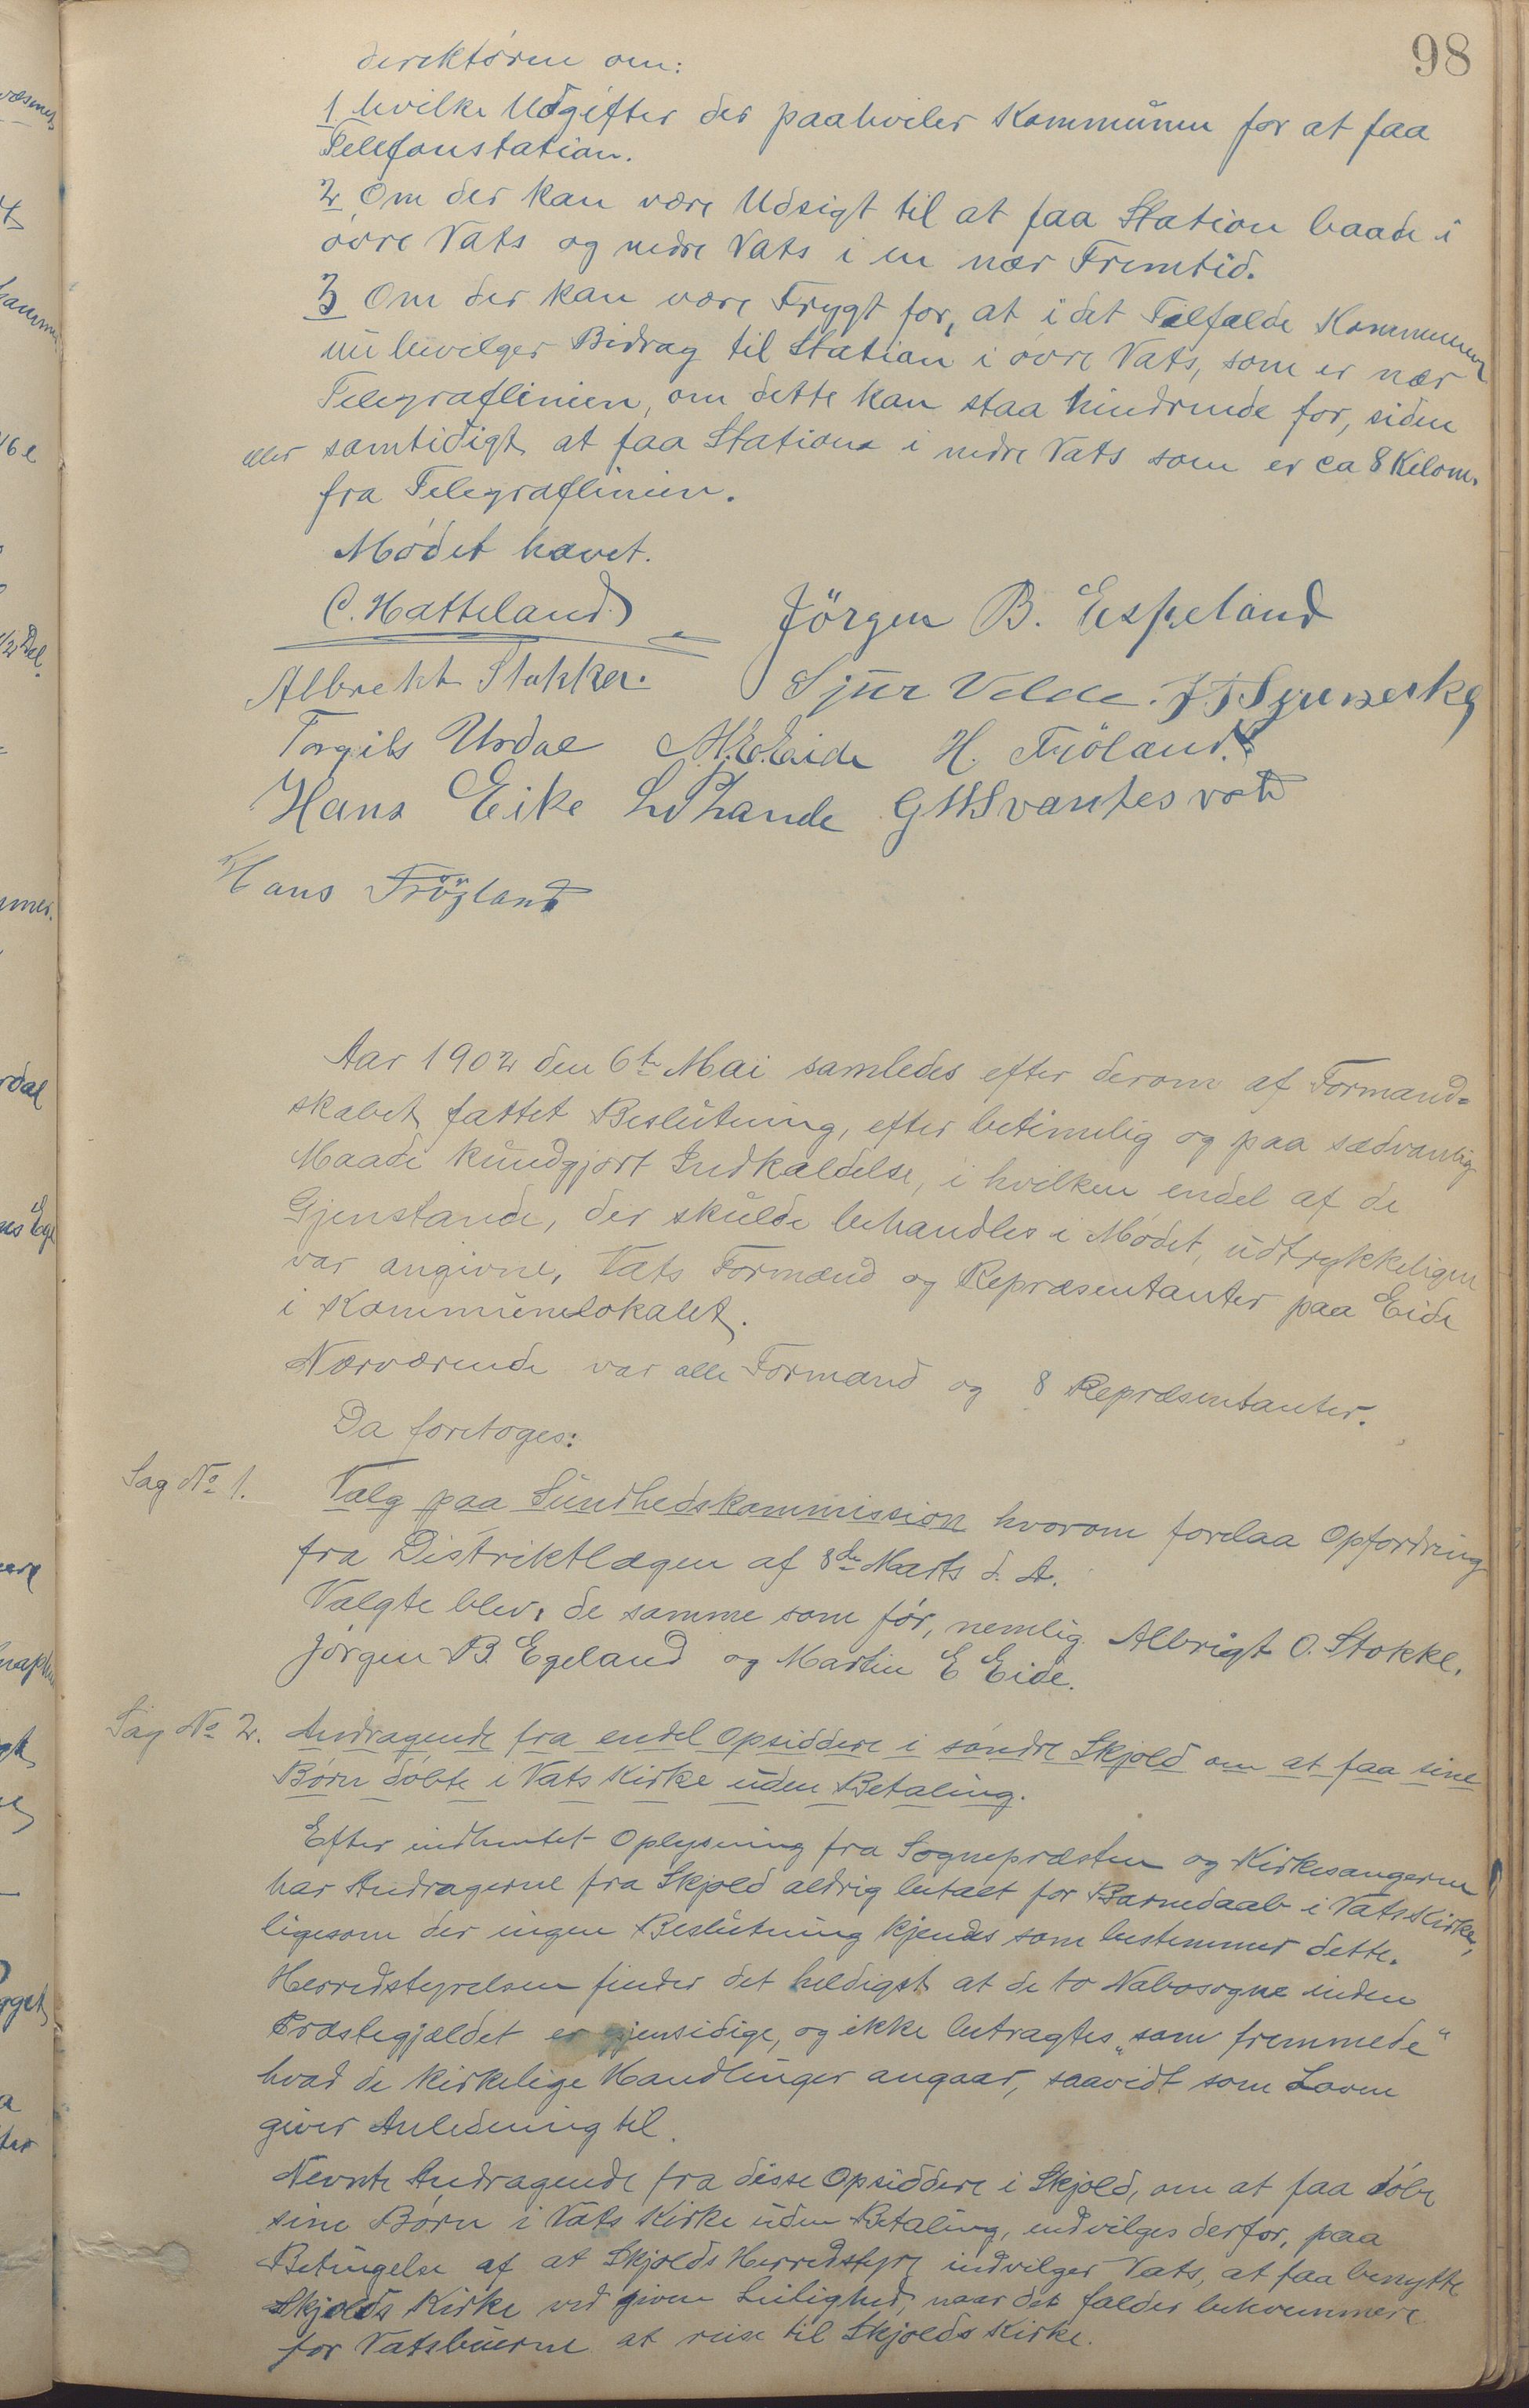 98
direktören om:
1 hvilke Udgifter der paahviler Kommunen for at faa
Telefonstation.
2 Om der kan være Udsigt til at faa Station baade i
övre Vats og nedre Vats i en nær Fremtid.
3 Om der kan være Frygt for, at i det Tilfælde Kommunen
nu bevilger Bidrag til Station i övre Vats, som er nær
Telegraflinien, om dette kan staa hindrende for, siden
eller samtidigt at faa Station i nedre Vats som er ca 8 Kilom.
fra Telegraflinien.
Mödet hævet.
C. Hatteland. Jörgen B. Espeland
Albrekt Stokke. Sjur Velde.
Torgils Urdal M. E. Eide H. Fröland.
Hans Eike Svantesvold
Hans Fröyland
Aar 1902 den 6te Mai samledes efter derom af Formand-
skabet fattet Beslutning, efter betimelig og paa sædvanlig
Maade kundgjort Indkaldelse, i hvilken endel af de
Gjenstande, der skulde behandles i Mödet, udtrykkeligen
var angivne, Vats Formænd og Repræsentanter paa Eide
i Kommunelokalet.
Nærværende var alle Formænd og 8 Repræsentanter.
Da foretoges:
Sag No 1. Valg paa Sundhedskommission hvorom forelaa Opfordring
fra Distriktlægen af 8de Marts d. A.
Valgte blev: de samme som för, nemlig Albrigt O. Stokke,
Jörgen B. Egeland og Martin E Eide.
Sag No 2. Andragende fra endel Opsiddere i söndre Skjold om at faa sine
Börn döbte i Vats Kirke uden Betaling.
Efter indhentet Oplysning fra Sognepræsten og Kirkesangeren
har Andragerne fra Skjold aldrig betalt for Barnedaab i Vats Kirke,
ligesom der ingen Beslutning kjendes som bestemmer dette.
Herredstyrelsen finder det heldigst at de to Nabosogne inden
Præstegjældet er gjensidige, og ikke betragtes "som fremmede"
hvad de kirkelige Handlinger angaar, saavidt som Loven
giver Anledning til.
Nevnte Andragende fra disse Opsiddere i Skjold, om at faa döbe
sine Börn i Vats Kirke uden Betaling, indvilges derfor, paa
Betingelse af at Skjolds Herredstyre indvilger Vats, at faa benytte
Skjolds Kirke ved given Leilighed, naar det falder bekvemmere
for Vatsbuerne at reise til Skjolds Kirke.